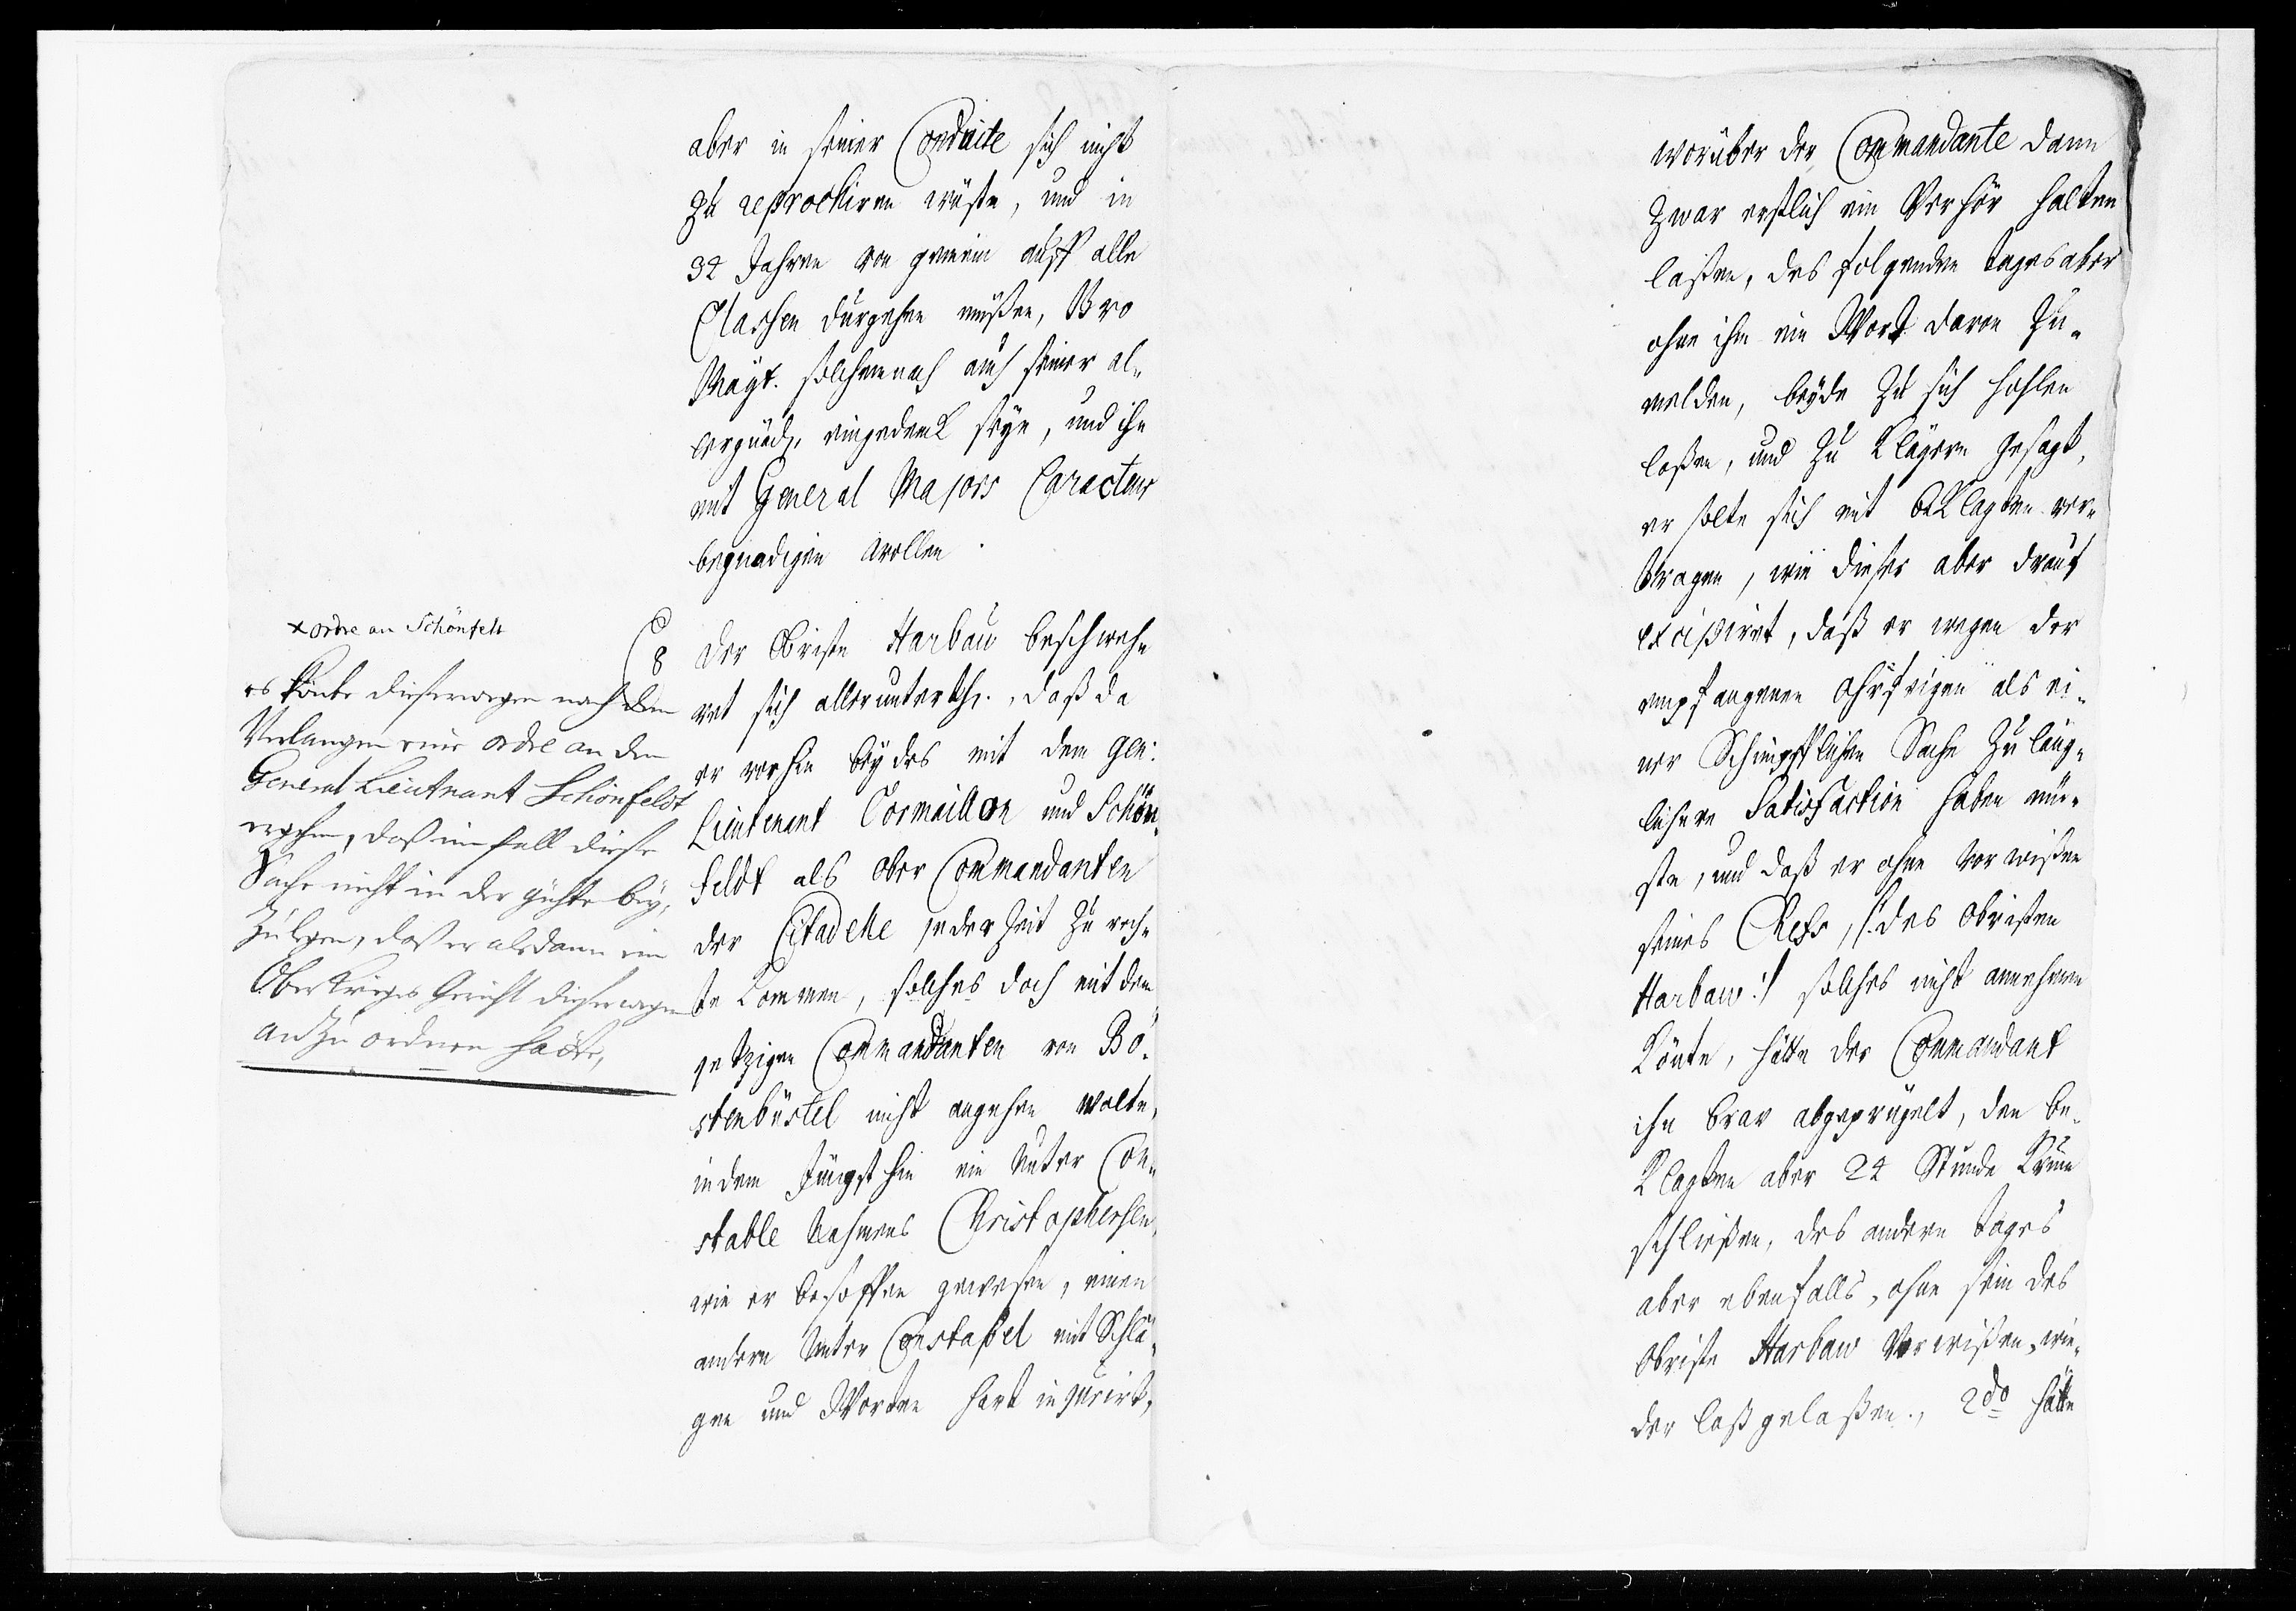 aber in seiner Conduite sich nicht
zu reprochiren wüste, und in
32 Jahren von gemein auff alle
Classen durgehen müßen, Ero
Mayt. solchemnach auch seiner al-
lergnäd. eingedenck seye, und ihn
mit General Majors Caracteur
begnadigen wollen.
x ordre an Schönfelt
es könte dieserwegen nach dem
Verlangen eine ordre an den
General Lieutnant Schönfeldt
ergehen, daß im fall diese
Sache nicht in der güthe bey-
zulegen, daß er alsdann ein
Ober Kriegs Gericht dieserwegen
anzuordnen hätte,
8 Der Obriste Harbau beschweh-
ret sich allerunterth., daß da
er vorhin beydes mit dem Gen:
Lieutenant Cormaillon und Schön-
feldt als Ober Commandanten
der Citadelle jederzeit zu rech-
te kommen, solches doch mit dem
jetzigen Commandanten von Bö-
stenbüstel nicht angehen wolte,
indem jüngsthin ein Unter Con-
stable Nahmens Christophersen,
wie er besoffen gewesen, einen
andern Unter Constabel mit Schlä-
gen und Worten hart injurirt,
worüber der Commandante dann
zwar erstlich ein Verhör halten
laßen, des folgenden tages aber
ohne ihm ein Wort davon zu-
melden, beyde zu sich hohlen
laßen, und zu Klägern gesagt,
er solte sich mit beklagten ver-
tragen, wie dieser aber drauf
excipiret, daß er wegen der
empfangenen Ohrfeigen als ei-
ner Schimpfflichen Sache zuläng-
lichere Satisfaction haben mü-
ste, und daß er ohne Vorwißen
seines Chefs, /: des Obristen
Harbaw :/ solches nicht annehmen
könte, hätte der Commandant
ihn brav abgeprügelt, den be-
klagten aber 24 Stunde krum
schließen, des andern tages
aber ebenfalls, ohne sein des
Obriste Harbaw Vorwißen, wie-
der loßgelaßen., 2do hätte